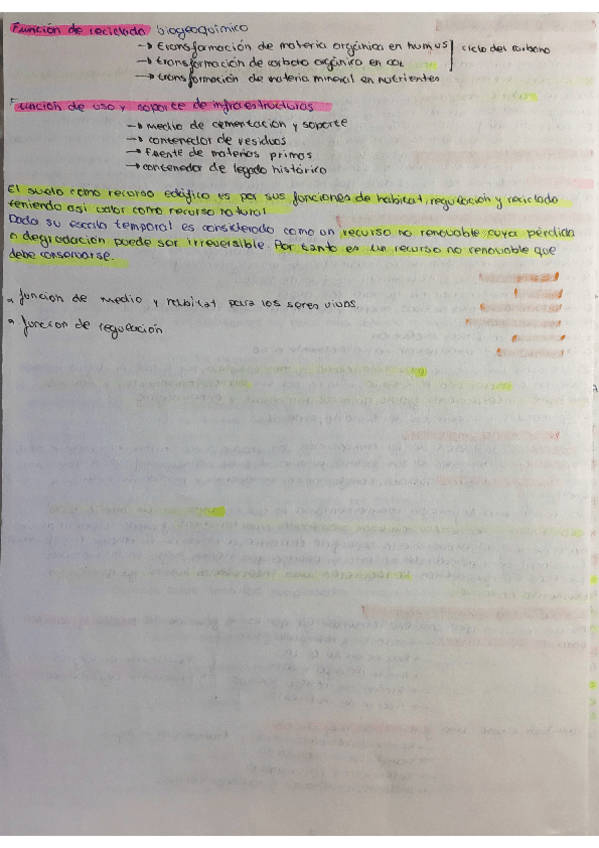 Función de reciclado biogeoquímico
→ transformación de materia orgánica en humus
→ transformación de carbono orgánico en CO2
ciclo del carbono
→ transformación de materia mineral en nutrientes
Función de uso y soporte de infraestructuras
→ medio de cementación y soporte
→ contenedor de residuos
→ fuente de materias primas
→ contenedor de legado histórico
El suelo como recurso edáfico es por sus funciones de habitat, regulación y reciclado
teniendo así valor como recurso natural
Dada su escala temporal es considerado como un recurso no renovable cuya pérdida
o degradación puede ser irreversible. Por tanto es un recurso no renovable que
debe conservarse.
funcion de medio y habitat para los seres vivos.
funcion de regulación